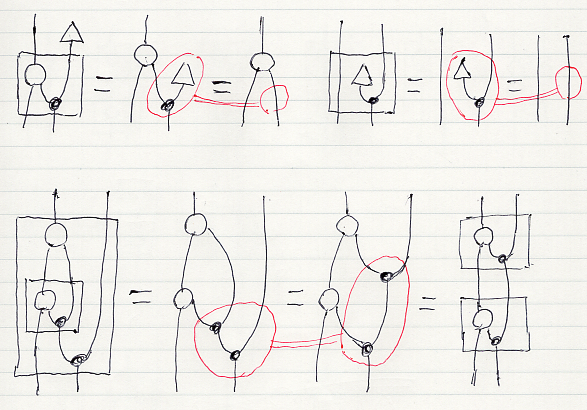 = = = =
= = =